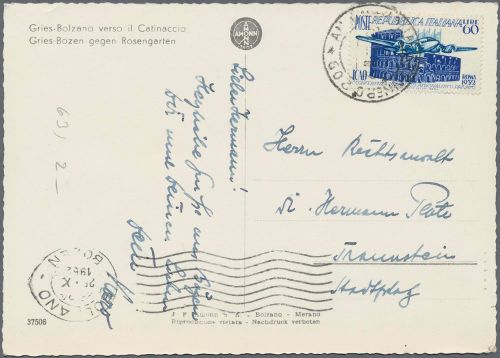 Gries-Bolzano verso il Catinaccio
Gries-Bozen gegen Rosengarten
AMONN
Lieber Hermann!
Herzliche Grüße aus Bozen
Dir und deinen Lieben
63/2-
POSTE REPUBBLICA ITALIANA LIRE
60
ICAO
ROMA
1952
Herrn Rechtsanwalt
Dr. Hermann
Traunstein
Stadtplatz
BOLZANO - BOZEN
X
1952
37506
J. F. Amonn s. A. - Bolzano - Merano
Riproduzione vietata - Nachdruck verboten